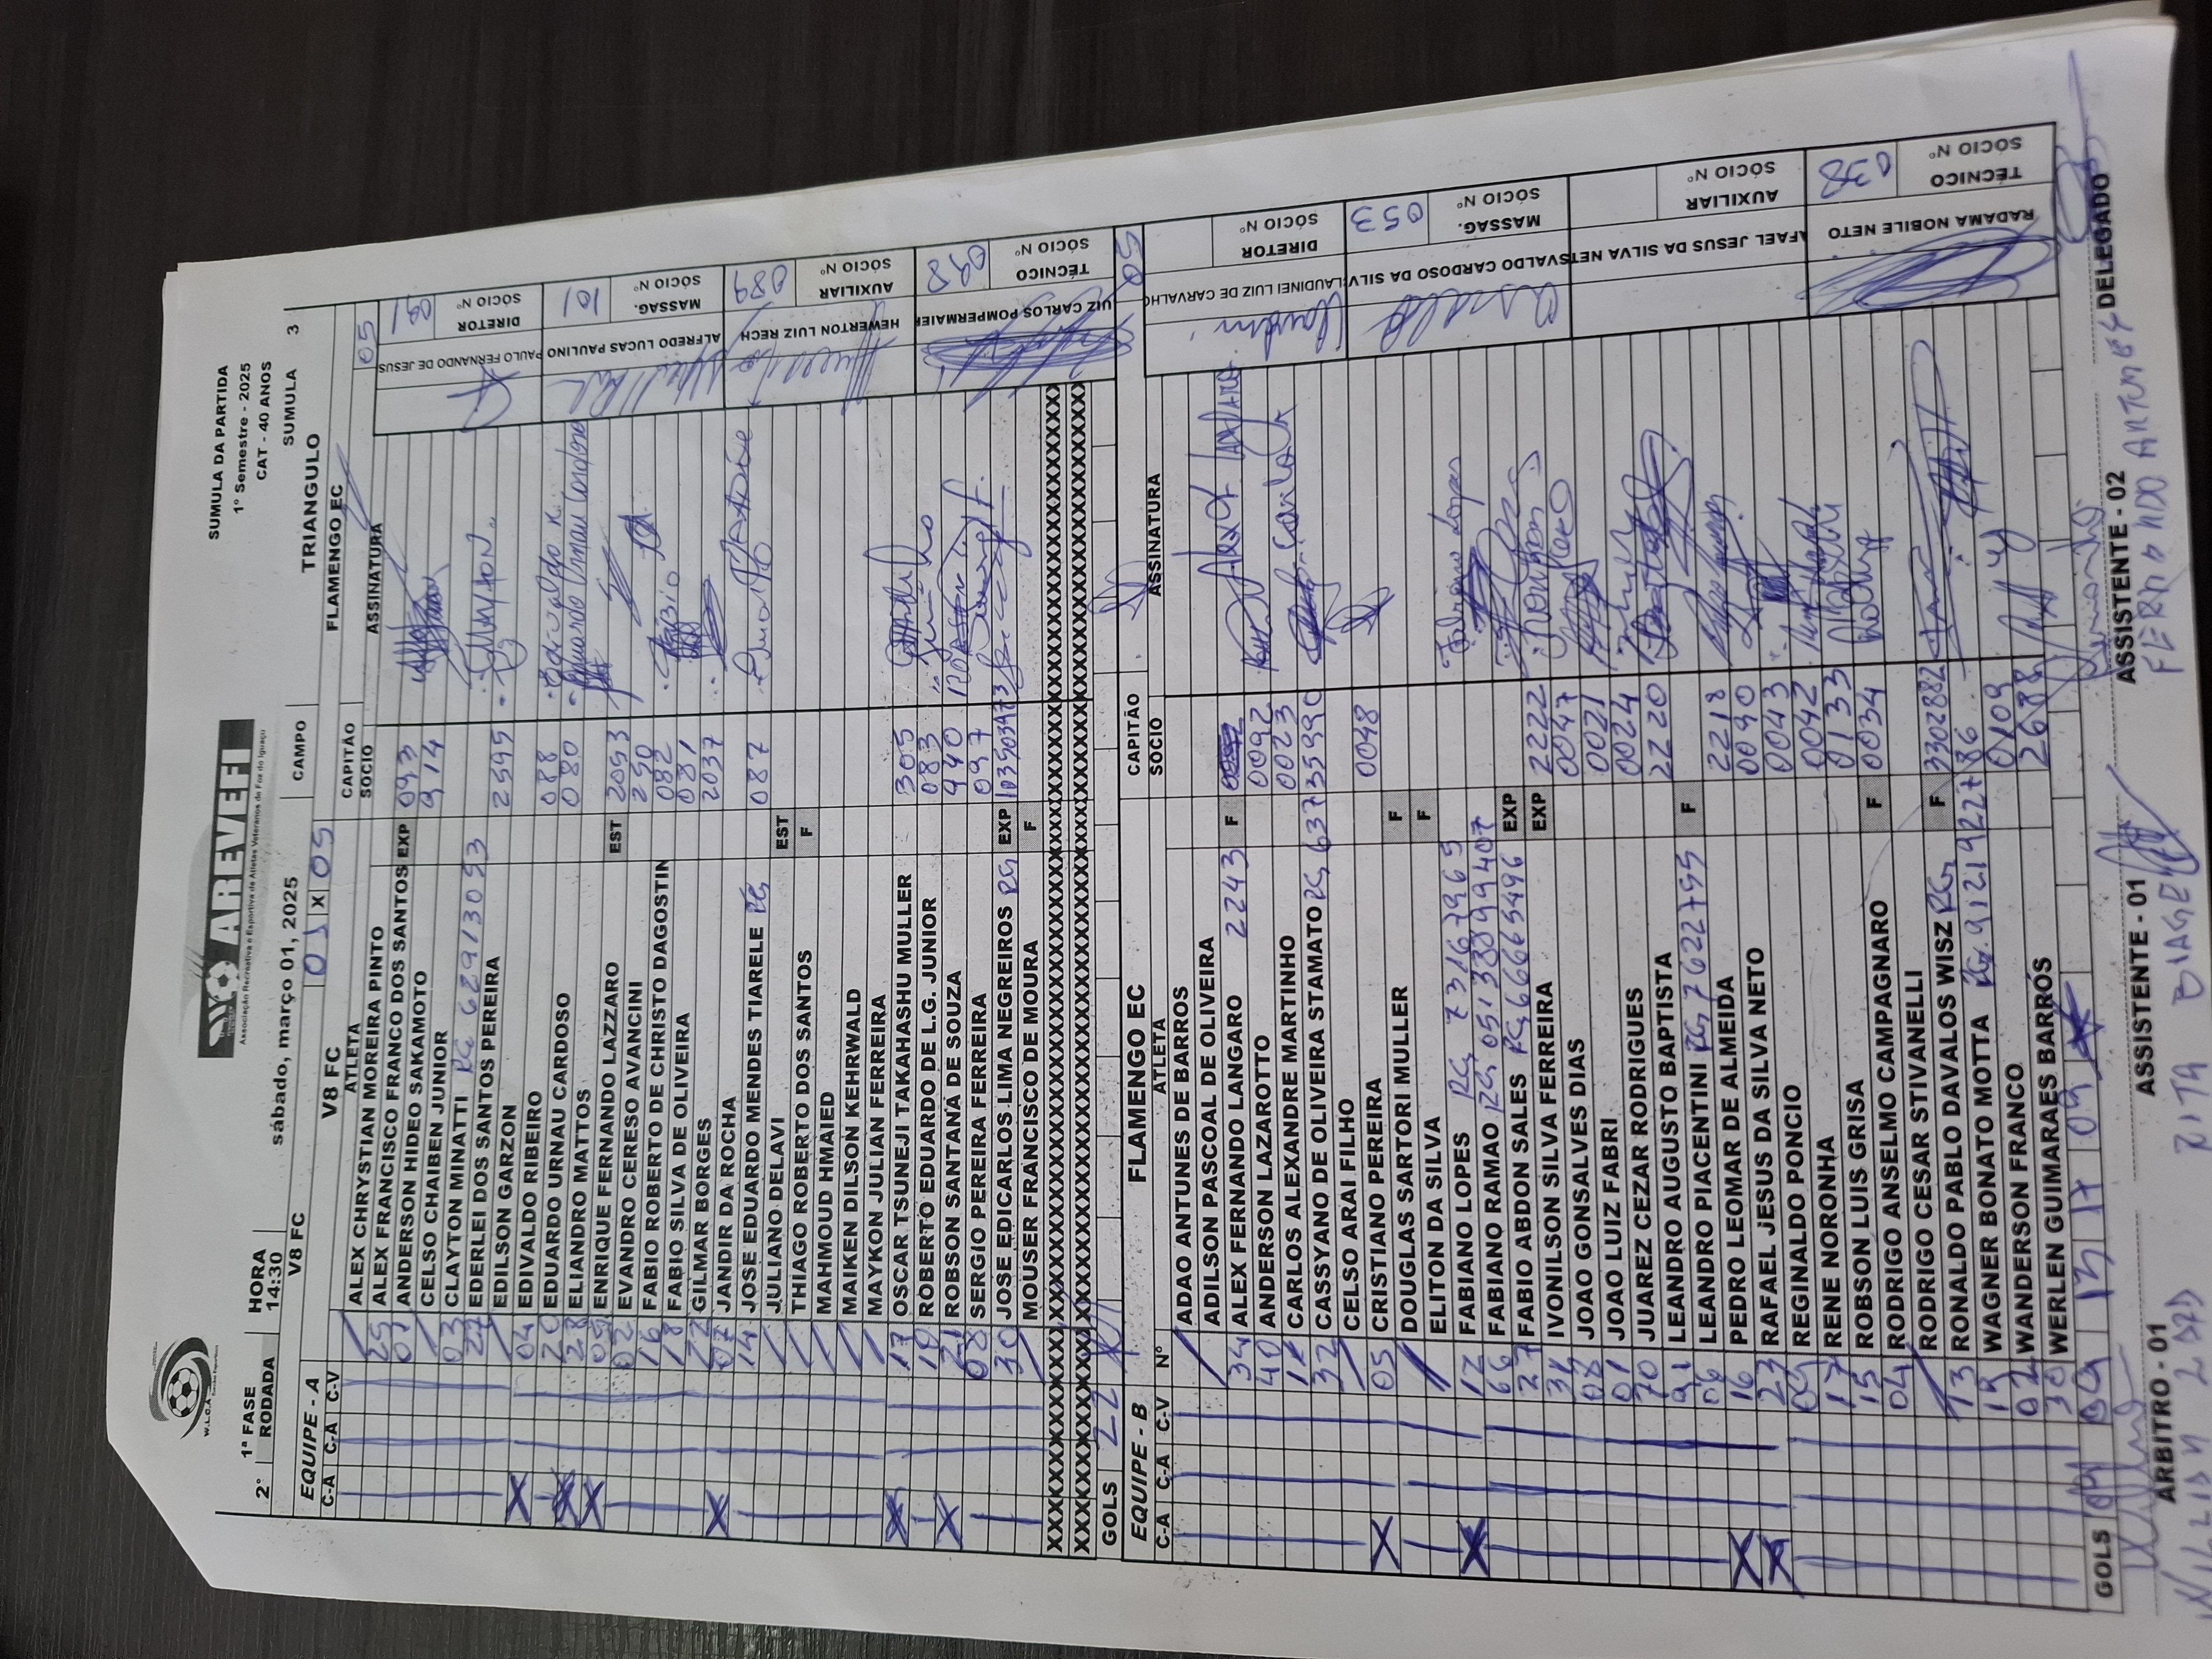 W.L.C.A
AREVEFI
Associação Recreativa e Esportiva de Atletas Veteranos de Foz do Iguaçu
SUMULA DA PARTIDA
1º Semestre - 2025
CAT - 40 ANOS
2º 1ª FASE HORA SUMULA 3
RODADA 14:30 sábado, março 01, 2025 CAMPO TRIANGULO
V8 FC X 05 FLAMENGO EC
EQUIPE - A V8 FC CAPITÃO 05
C-A C-A C-V ATLETA SOCIO ASSINATURA
ALEX CHRYSTIAN MOREIRA PINTO
25 ALEX FRANCISCO FRANCO DOS SANTOS EXP 093
01 ANDERSON HIDEO SAKAMOTO 914
CELSO CHAIBEN JUNIOR
03 CLAYTON MINATTI RG 62913053
22 EDERLEI DOS SANTOS PEREIRA 2595
EDILSON GARZON
X 04 EDIVALDO RIBEIRO 088
20 EDUARDO URNAU CARDOSO 080
X 28 ELIANDRO MATTOS
X 05 ENRIQUE FERNANDO LAZZARO EST 2053
02 EVANDRO CERESO AVANCINI 250
16 FABIO ROBERTO DE CHRISTO DAGOSTIN 082
18 FABIO SILVA DE OLIVEIRA 081
22 GILMAR BORGES 2037
X 07 JANDIR DA ROCHA
14 JOSE EDUARDO MENDES TIARELE RG 087
JULIANO DELAVI EST
THIAGO ROBERTO DOS SANTOS F
MAHMOUD HMAIED
MAIKEN DILSON KEHRWALD
MAYKON JULIAN FERREIRA
X 17 OSCAR TSUNEJI TAKAHASHU MULLER 305
10 ROBERTO EDUARDO DE L.G. JUNIOR 083
X 21 ROBSON SANTANA DE SOUZA 940
08 SERGIO PEREIRA FERREIRA 097
30 JOSE EDICARLOS LIMA NEGREIROS RG EXP 103503973
MOUSER FRANCISCO DE MOURA F
GOLS 22
PAULO FERNANDO DE JESUS DIRETOR SÓCIO Nº 091
ALFREDO LUCAS PAULINO MASSAG. SÓCIO Nº 101
HEWERTON LUIZ RECH AUXILIAR SÓCIO Nº 089
UIZ CARLOS POMPERMAIER TÉCNICO SÓCIO Nº 098
EQUIPE - B FLAMENGO EC CAPITÃO 05
C-A C-A C-V Nº ATLETA SOCIO ASSINATURA
ADAO ANTUNES DE BARROS
ADILSON PASCOAL DE OLIVEIRA
34 ALEX FERNANDO LANGARO 2243 F
40 ANDERSON LAZAROTTO 0092
12 CARLOS ALEXANDRE MARTINHO 0023
32 CASSYANO DE OLIVEIRA STAMATO RG 63735990
CELSO ARAI FILHO
X 05 CRISTIANO PEREIRA 0048
DOUGLAS SARTORI MULLER F
ELITON DA SILVA F
X 12 FABIANO LOPES RG 73167965
66 FABIANO RAMAO RG 05133899407
27 FABIO ABDON SALES RG 66665496 EXP
31 IVONILSON SILVA FERREIRA EXP 2222
08 JOAO GONSALVES DIAS 0047
01 JOAO LUIZ FABRI 0021
70 JUAREZ CEZAR RODRIGUES 0024
91 LEANDRO AUGUSTO BAPTISTA 2220
06 LEANDRO PIACENTINI RG 7622755 F
X 16 PEDRO LEOMAR DE ALMEIDA 2218
X 23 RAFAEL JESUS DA SILVA NETO 0090
09 REGINALDO PONCIO 0043
17 RENE NORONHA 0042
15 ROBSON LUIS GRISA 0133
04 RODRIGO ANSELMO CAMPAGNARO F 0034
RODRIGO CESAR STIVANELLI
13 RONALDO PABLO DAVALOS WISZ RG F 3302882
19 WAGNER BONATO MOTTA RG 9121922786
02 WANDERSON FRANCO 0109
30 WERLEN GUIMARAES BARRÓS 2688
GOLS 09 09 13 17 09
LAUDINEI LUIZ DE CARVALHO DIRETOR SÓCIO Nº
SVALDO CARDOSO DA SILV MASSAG. SÓCIO Nº 053
AFAEL JESUS DA SILVA NET AUXILIAR SÓCIO Nº
RADAMA NOBILE NETO TÉCNICO SÓCIO Nº 038
ÁRBITRO - 01 ASSISTENTE - 01 ASSISTENTE - 02 DELEGADO
RITA